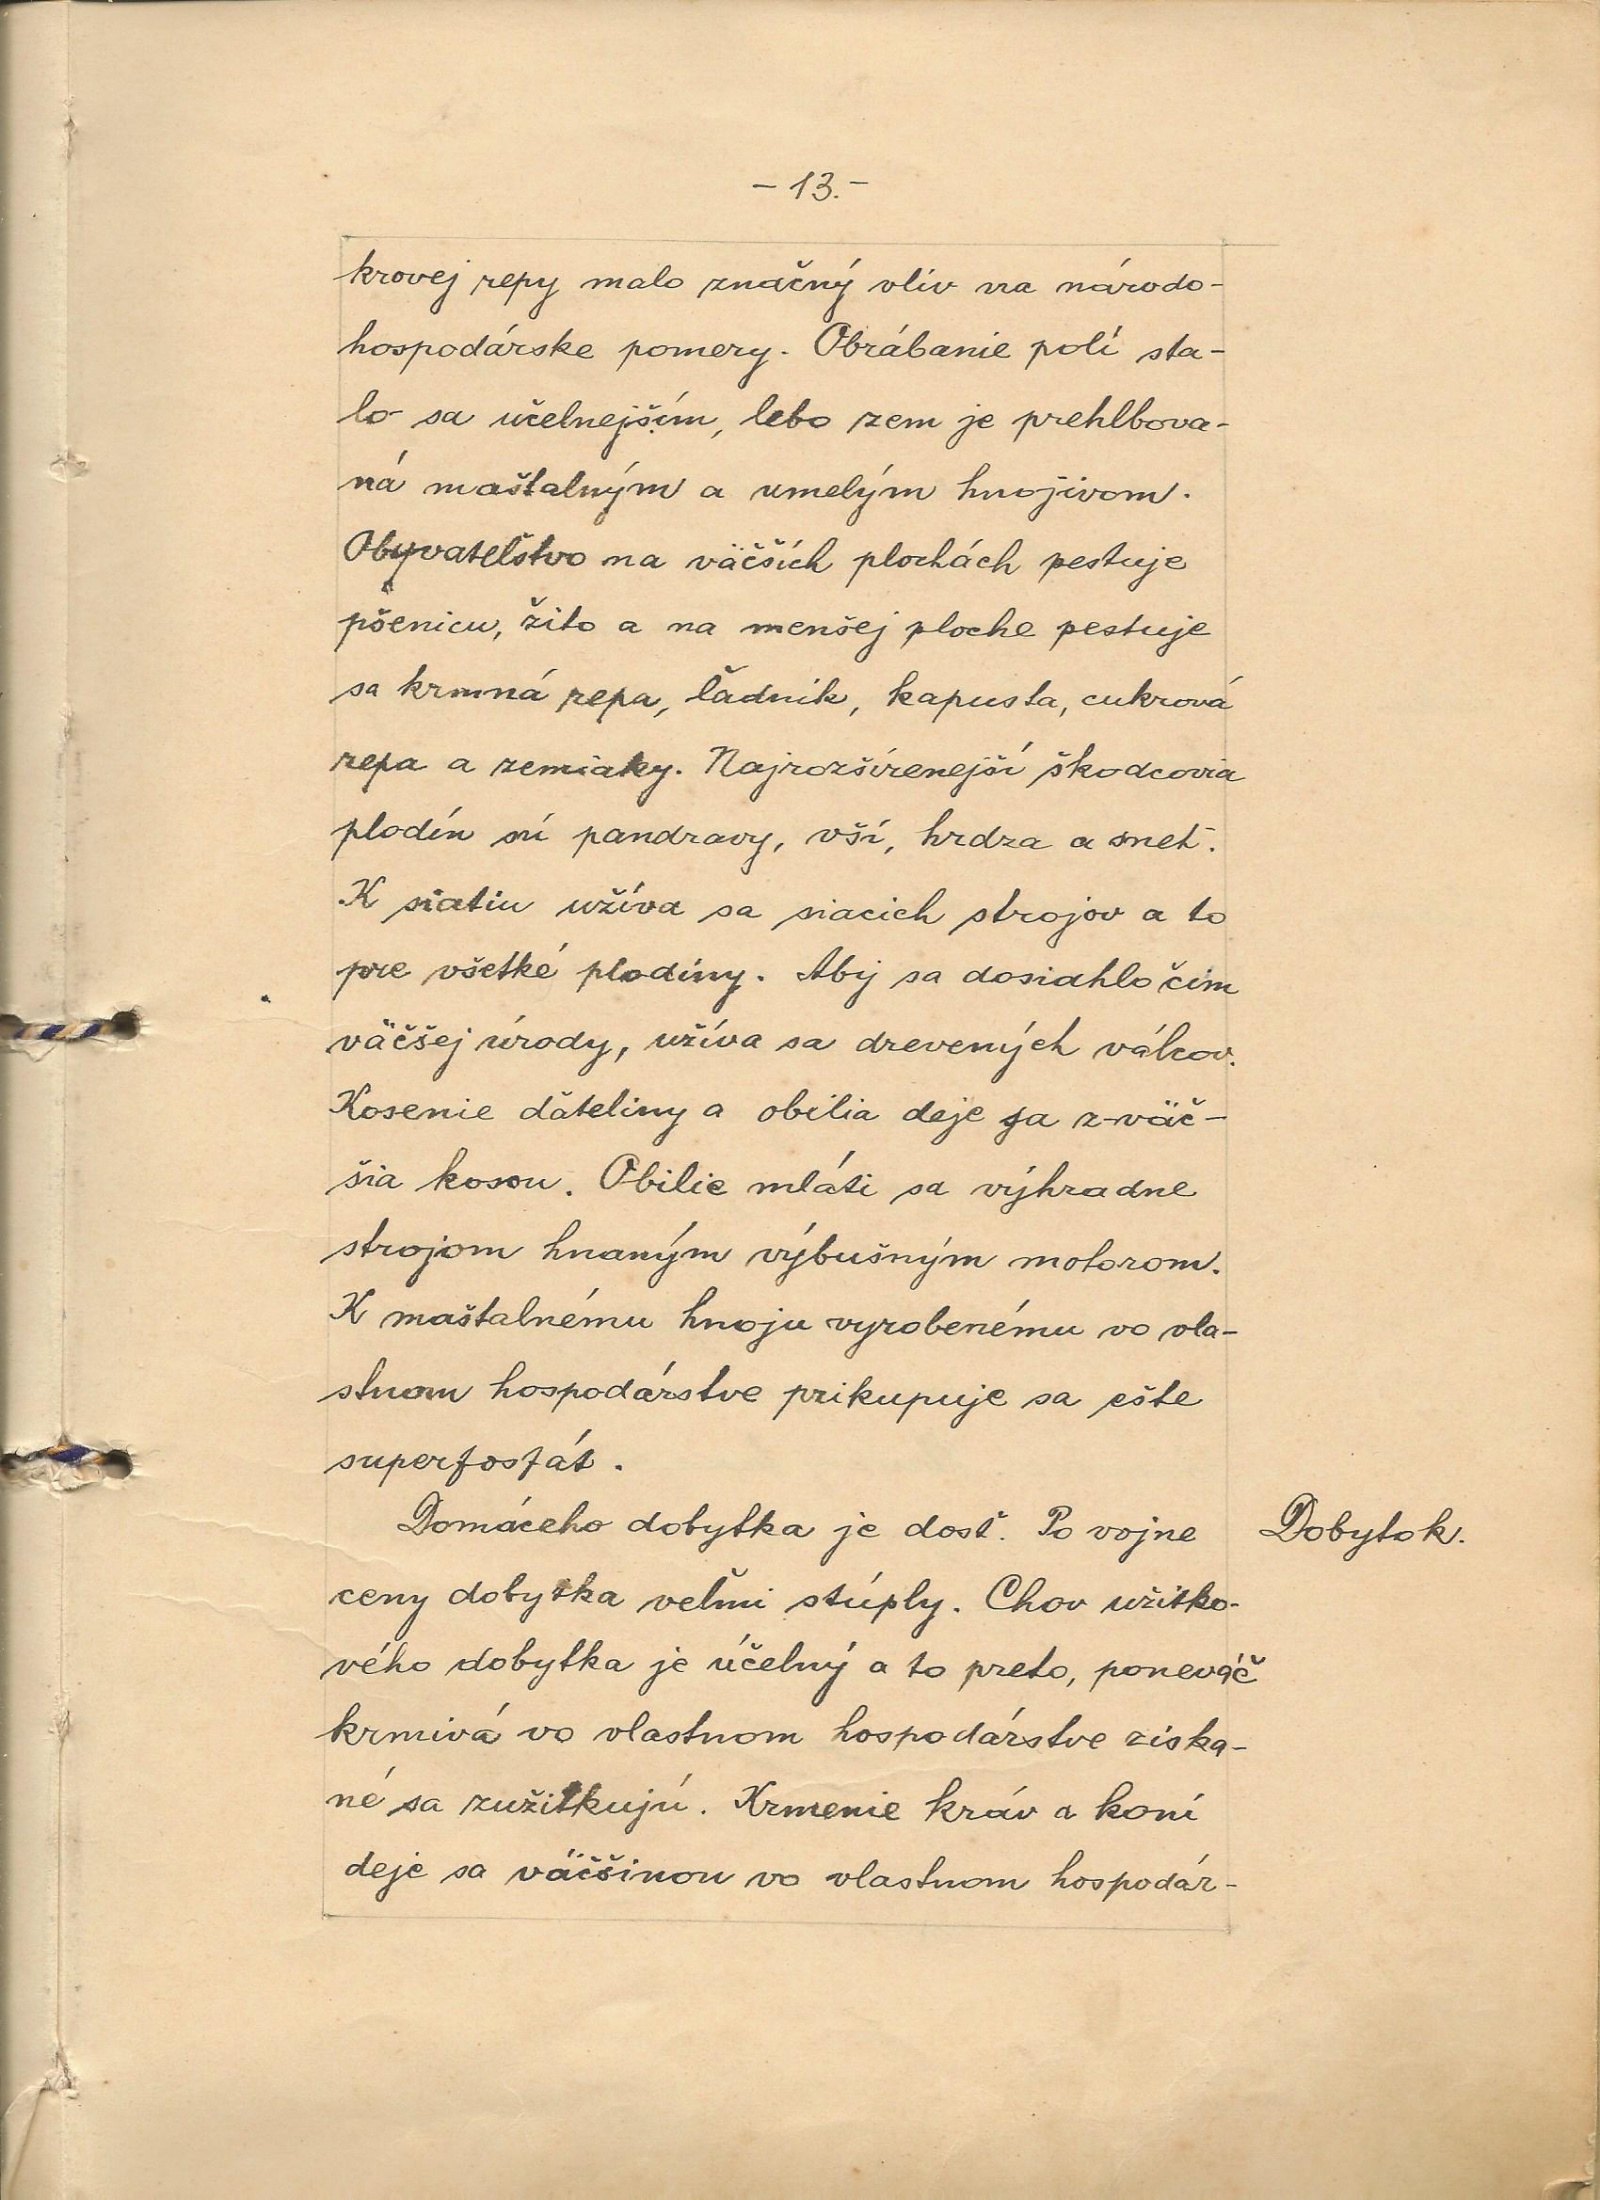 - 13. -
krovej repy malo značný vliv na národo-
hospodárske pomery. Obrábanie polí sta-
lo sa účelnejším, lebo zem je prehlbova-
ná maštalným a umelým hnojivom.
Obyvateľstvo na väčších plochách pestuje
pšenicu, žito a na menšej ploche pestuje
sa krmná repa, ľadník, kapusta, cukrová
repa a zemiaky. Najrozšírenejší škodcovia
plodín sú pandravy, vši, hrdza a sneť.
K siatiu užíva sa siacich strojov a to
pre všetké plodiny. Aby sa dosiahlo čím
väčšej úrody, užíva sa drevených válcov.
Kosenie ďateliny a obilia deje sa z-väč-
šia kosou. Obilie mláti sa výhradne
strojom hnaným výbušným motorom.
K maštalnému hnoju vyrobenému vo vla-
stnom hospodárstve prikupuje sa ešte
superfosfát.
Domáceho dobytka je dosť. Po vojne
Dobytok.
ceny dobytka veľmi stúply. Chov užitko-
vého dobytka je účelný a to preto, poneváč
krmivá vo vlastnom hospodárstve získa-
né sa zužitkujú. Krmenie kráv a koní
deje sa väčšinou vo vlastnom hospodár-